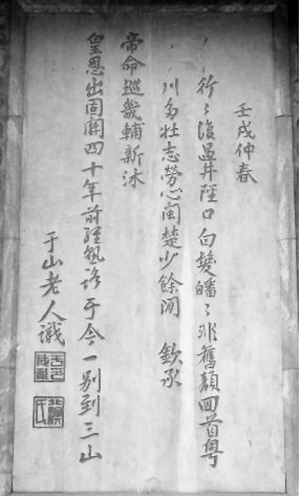 壬戌仲春
行々復過井陘口白髮皤々非舊顏回首粵
川多壯志勞心閩楚少餘閒 欽承
帝命巡畿輔新沐
皇恩出固關四十年前經熟路于今一別到三山
于山老人識